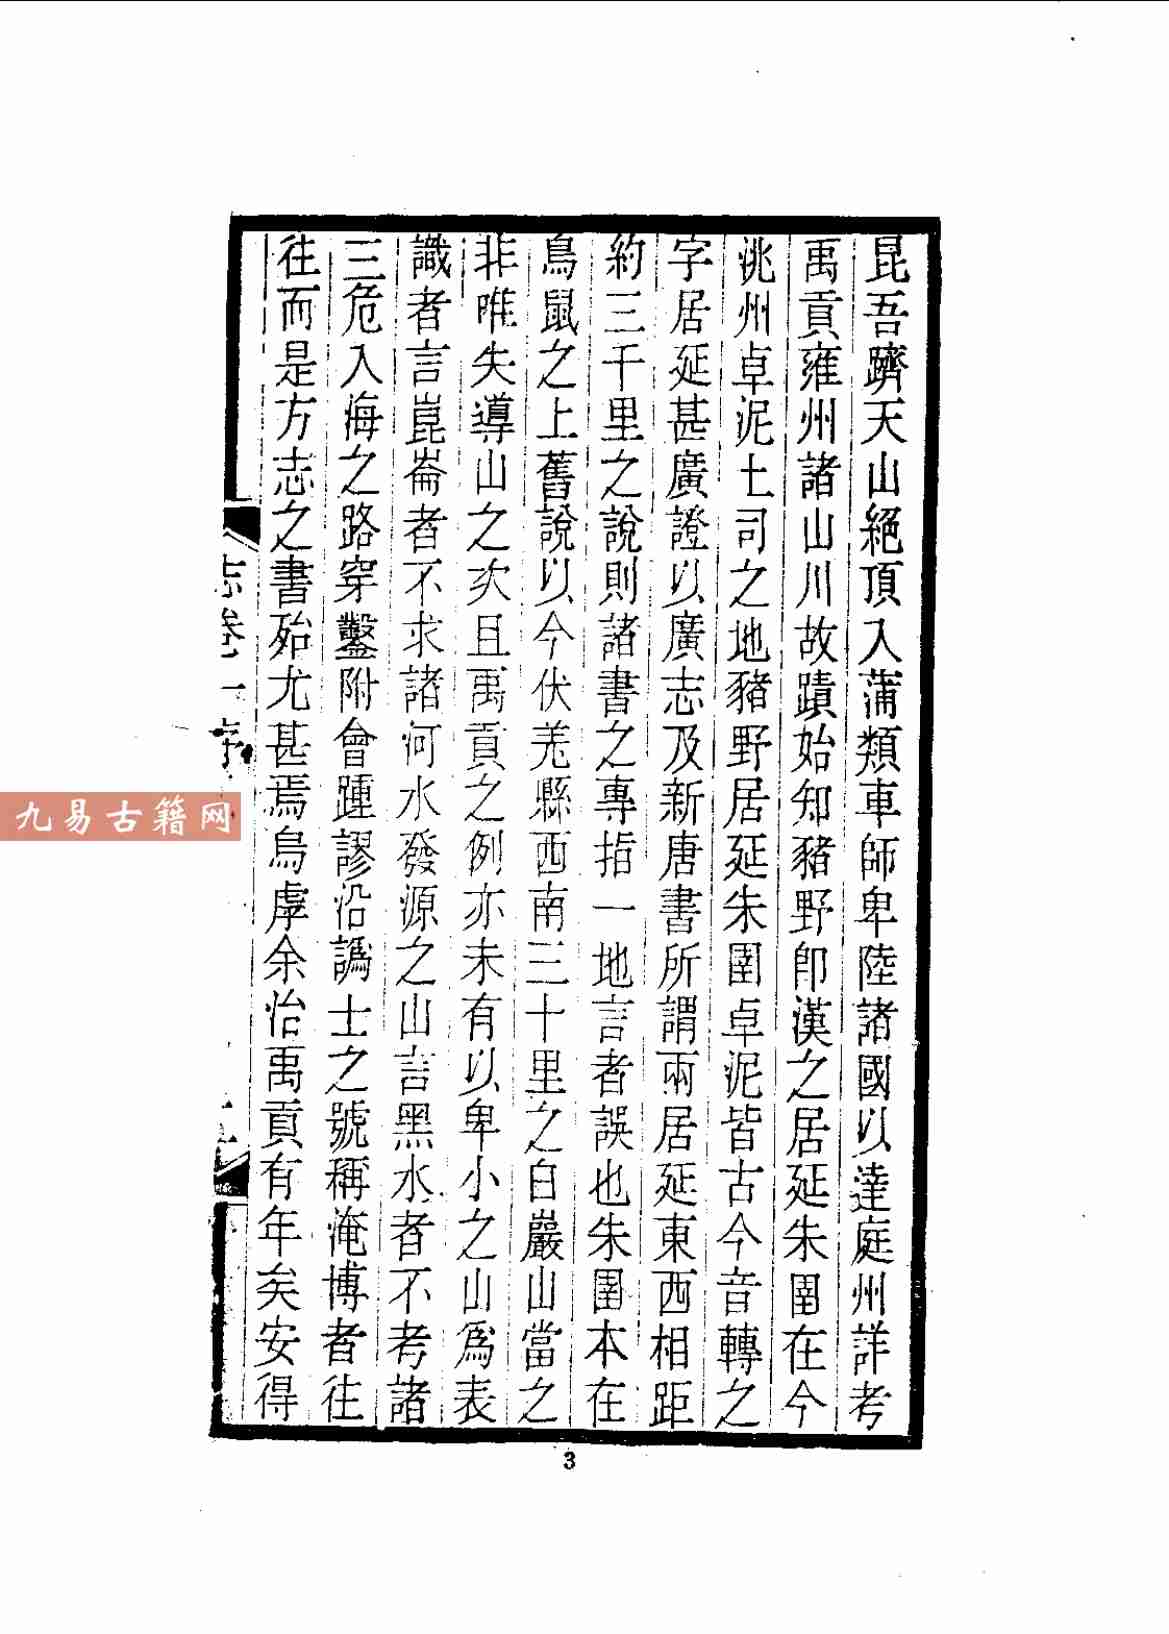 昆吾躋天山絕頂入蒲類車師卑陸諸國以達庭州詳考
禹貢雍州諸山川故蹟始知豬野卽漢之居延朱圉在今
洮州卓泥土司之地豬野居延朱圉卓泥皆古今音轉之
字居延甚廣證以廣志及新唐書所謂兩居延東西相距
約三千里之說則諸書之專指一地言者誤也朱圉本在
鳥鼠之上舊說以今伏羌縣西南三十里之白巖山當之
非唯失導山之次且禹貢之例亦未有以卑小之山爲表
識者言崑崙者不求諸河水發源之山言黑水者不考諸
三危入海之路穿鑿附會踵謬沿譌士之號稱淹博者往
往而是方志之書殆尤甚焉烏虖余治禹貢有年矣安得
志卷一序
九易古籍网
3